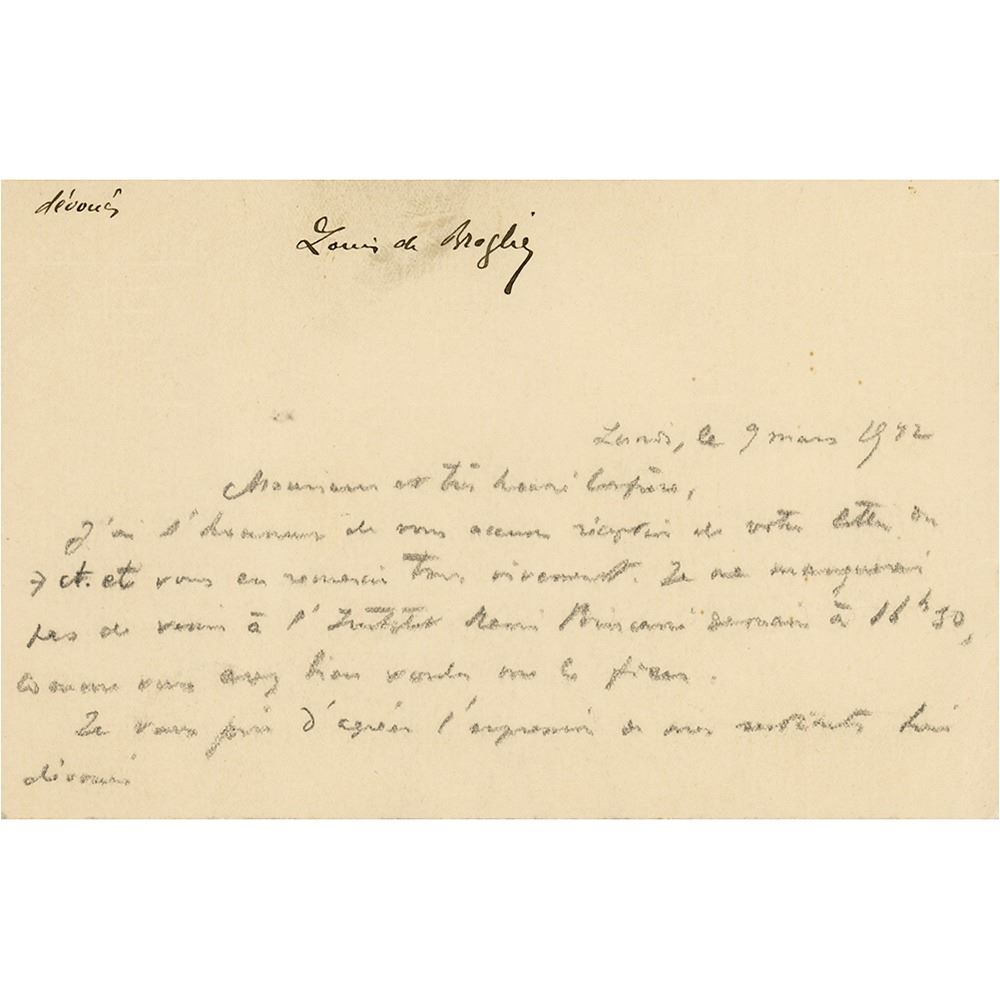 dévoués
Louis de Broglie
Lundi, le 9 mars 19
Monsieur et très honoré Confrère,
J'ai l'honneur de vous accuser réception de votre lettre du
7 ct. et vous en remercie très vivement. Je ne manquerai
pas de venir à l'Institut Henri Poincaré demain à 30,
comme vous avez bien voulu me le
Je vous prie d'agréer l'expression de mes sentiments
dévoués